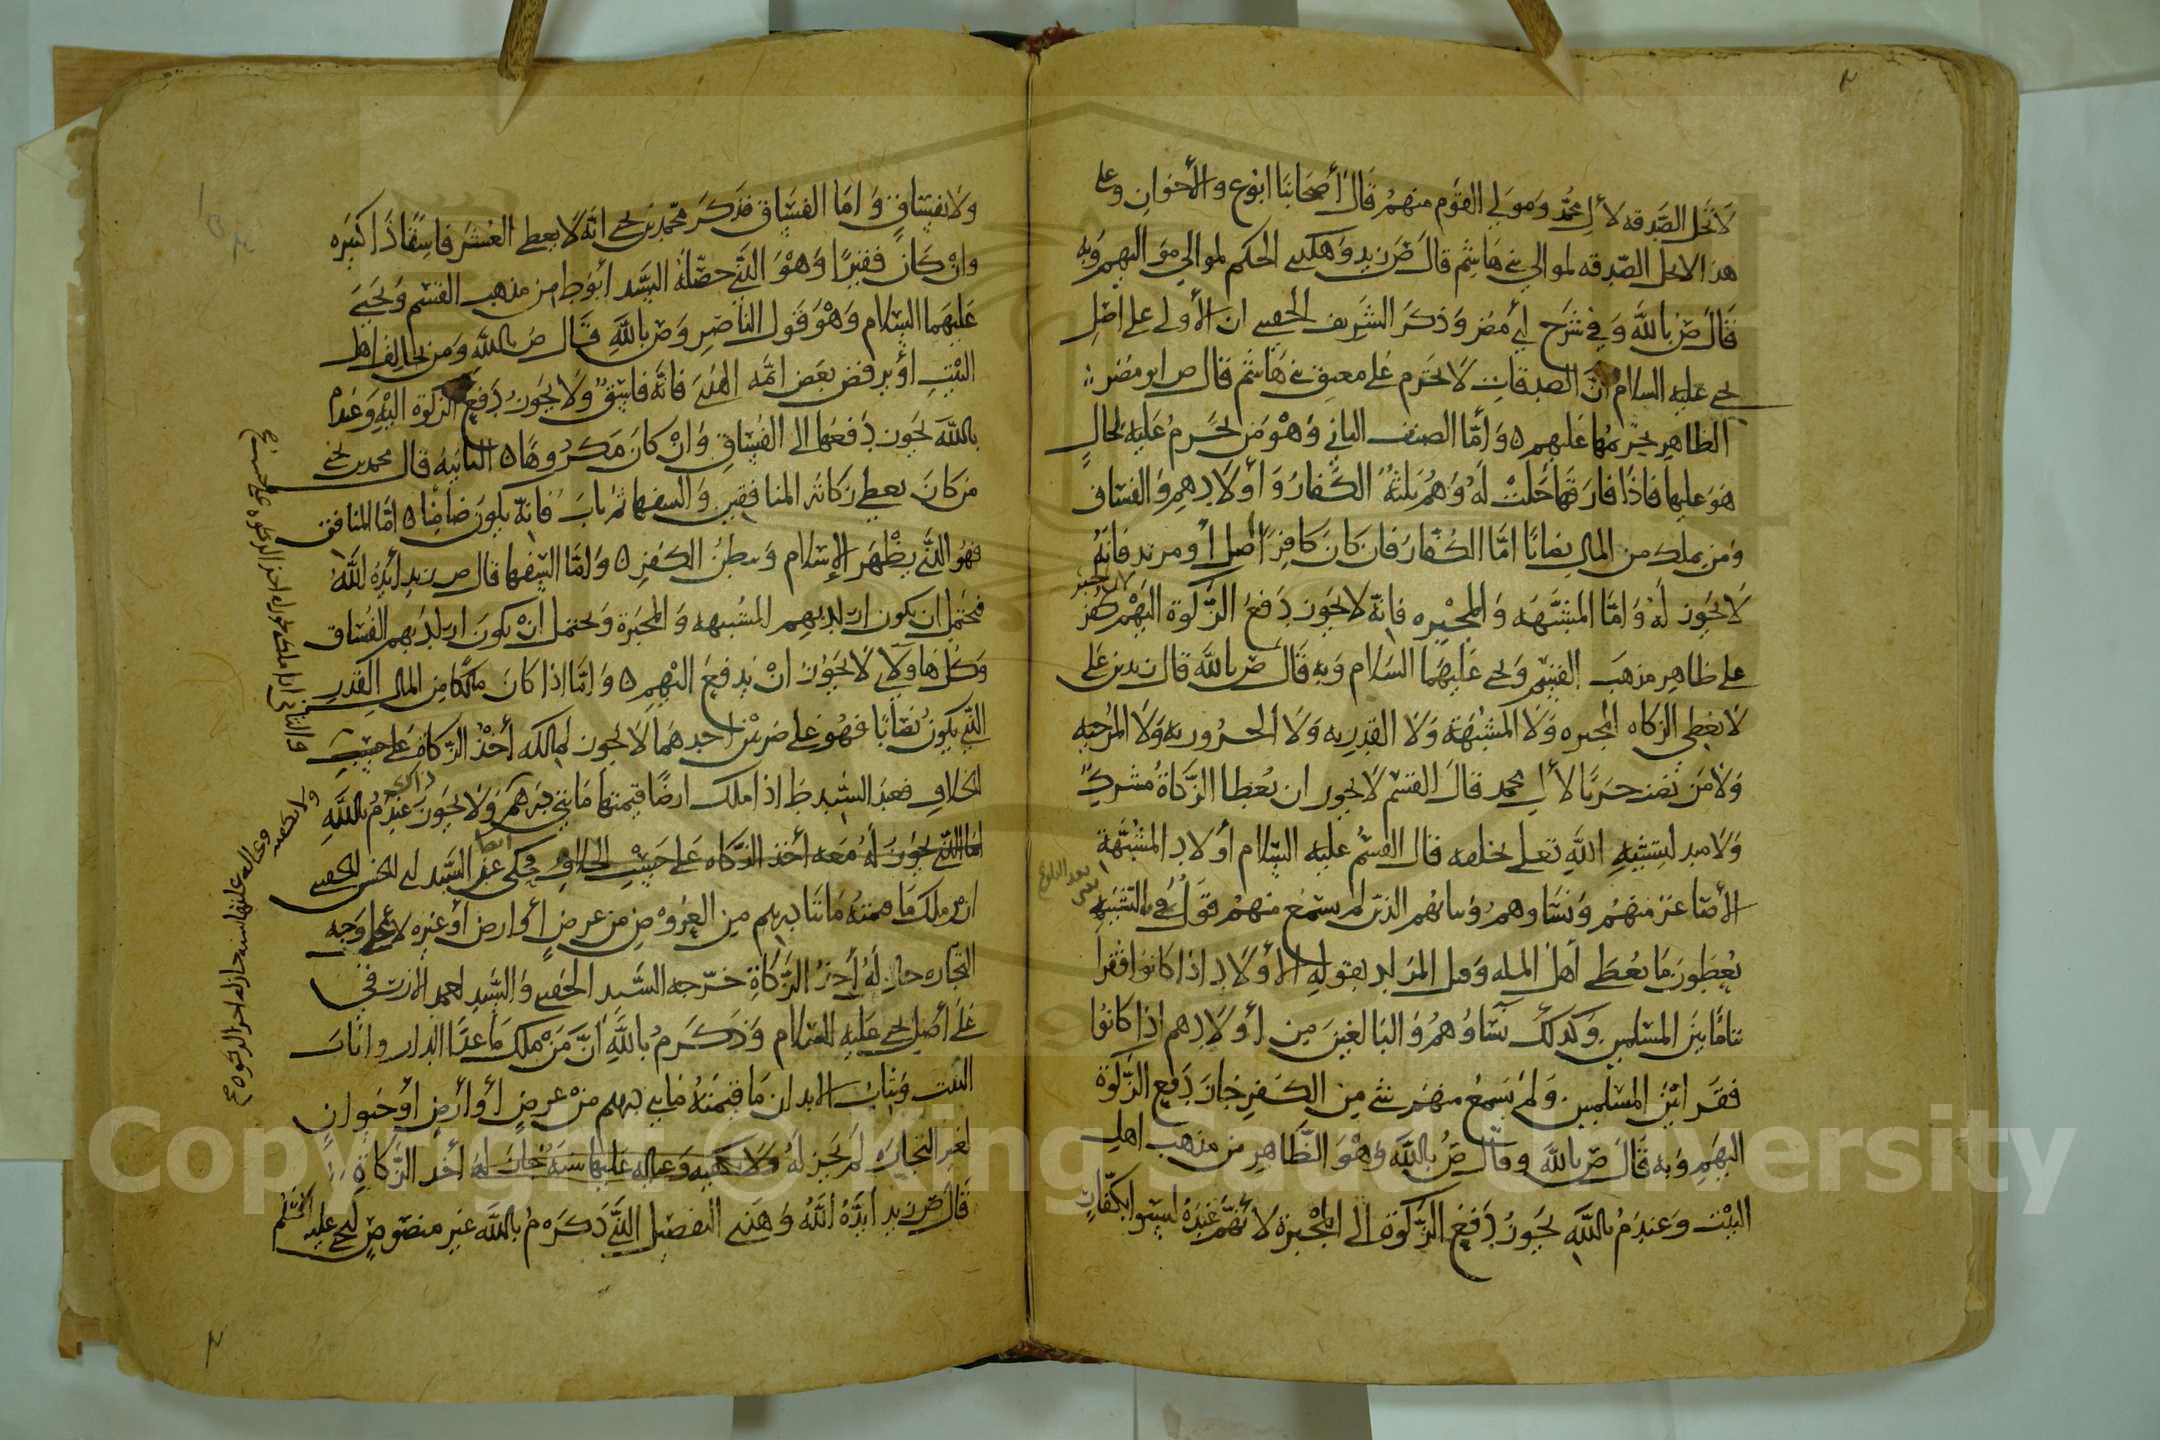 لا تحل الصدقه لأل محمد ومولي القوم منهم قال أصحابنا ابوع والأخوان وعلى
هذا لا تحل الصدقه لموالي بني هاشم قال ص زيد وهكذى الحكم لموالي مواليهم وبه
قال ص بالله وفي شرح ابي مضر وذكر الشريف الحسني ان الأولى على اصل
يحي عليه السلام أن الصدقات لا تحرم على معتق بني هاشم قال ص ابو مضر
الظاهر تحريمها عليهم ٥ وأما الصنف الثاني وهو من تحرم عليه لحالٍ
هو عليها فاذا فارقها حلت له وهم ثلثة الكفار وأولادهم والفساق
ومن يملك من المال نصابا اما الكفار فان كان كافرا أصلي أو مرتد فانه
لا يجوز له وأما المشبهه والمجبره فانه لا يجوز دفع الزكوة اليهم
على ظاهر مذهب القسم ويحي عليهما السلام وبه قال ص بالله قال زيد بن علي
لا يعطي الزكاه المجبره ولا المشبهة ولا القدريه ولا الحروريه ولا المرجيه
ولا من نصب حربا لأل محمد قال القسم لا يجوز ان يعطا الزكاة مشرك
ولا مبد لتشبيه الله تعلى بخلقه قال القسم عليه السلام أولاد المشبهة
الأصاغر منهم ونساوهم وبناتهم الذين لم يسمع منهم قول في التشبيه
بعد البلوغ
يعطون ما يعطى أهل المله وقيل المراد بقوله الأولاد اذا كانوا فقرا
تناما بين المسلمين وكذلك نساوهم والبالغين من أولادهم اذا كانوا
فقرا بين المسلمين ولم يسمع منهم شي من الكفر جاز دفع الزكوة
اليهم وبه قال ص بالله وقال ص بالله وهو الظاهر من مذهب اهل
البيت وعند م بالله يجوز دفع الزكوة الى المجبرة لأنهم عنده ليسوا بكفار
ولا بفساق وأما الفساق فذكر محمد بن يحي انه لا يعطى العشر فاسقا ذا كبيره
وان كان فقيرا وهو الذي حصله السيد أبو ط من مذهب القسم ويحيى
عليهما السلام وهو قول الناصر وص بالله قال ص بالله ومن يخالف اهل
البيت أو يرفض بعض ائمه الهدى فانه فاسق ولا يجوز دفع الزكوة اليه وعند م
بالله يجوز دفعها الى الفساق وان كان مكروها ٥ الثانيه قال محمد بن يحي
من كان يعطي زكاته المنافقين والسفها ثم تاب فانه يكون ضامنا ٥ اما المنافق
فهو الذي يظهر الإسلام ويبطن الكفر ٥ وأما السفها قال ص زيد أيده الله
فيحتمل ان يكون اراد بهم المشبهه والمجبرة ويحتمل ان يكون اراد بهم الفساق
وكل هاولاي لا يجوز ان يدفع اليهم ٥ وأما اذا كان مالكا من المال القدر
الذي يكون نصابا فهو على ضربين احدهما لا يجوز لمالكه أخذ الزكاة على حسب
الخلاف فعند السيد ط اذا ملك ارضا قيمتها مايتي درهم ولا يجوز عند م بالله
اما الذي يجوز له معه أخذ الزكاه على حسب الخلاف حكي عن السيد ابي الحسن الحسني
ان من ملك ما قيمته مائتا درهم من العروض من عرض أو ارض أو غيره لا على وجه
التجاره جاز له أخذ الزكاة خرجه السيد الحسني والسيد احمد الازرقي
على أصل يحي عليه السلام وذكر م بالله أن من ملك ما عدا الدار واثاث
البيت وثياب الابدان ما قيمته مايتي درهم من عرض أو أرض أو حيوان
لغير التجاره لم يجز له ولا تكفيه وعياله غلتها سنه جاز له أخذ الزكاة
قال ص زيد ايده الله وهذى التفصيل الذي ذكره م بالله غير منصوص ليحي عليه السلم
ولا تكفيه
وعياله غلتها سنه جاز له اخذ الزكوة
Copyright © King Saud University